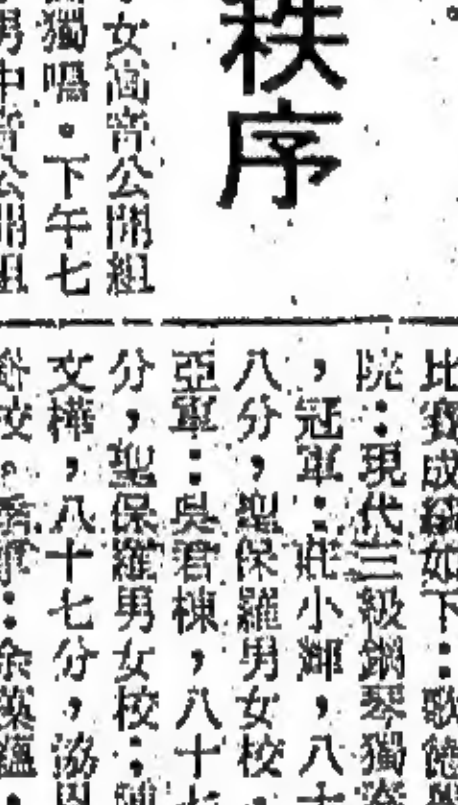 秩序
女高音公開組
獨唱。下午七
男中音公開組
比賽成績如下：歌德
院：現代三級鋼琴獨
，冠軍：莊小輝，八十
八分，聖保羅男女校。
亞軍：吳君棟，八十七
分，聖保羅男女校；陳
文樺，八十七分，協恩
校。季軍：余